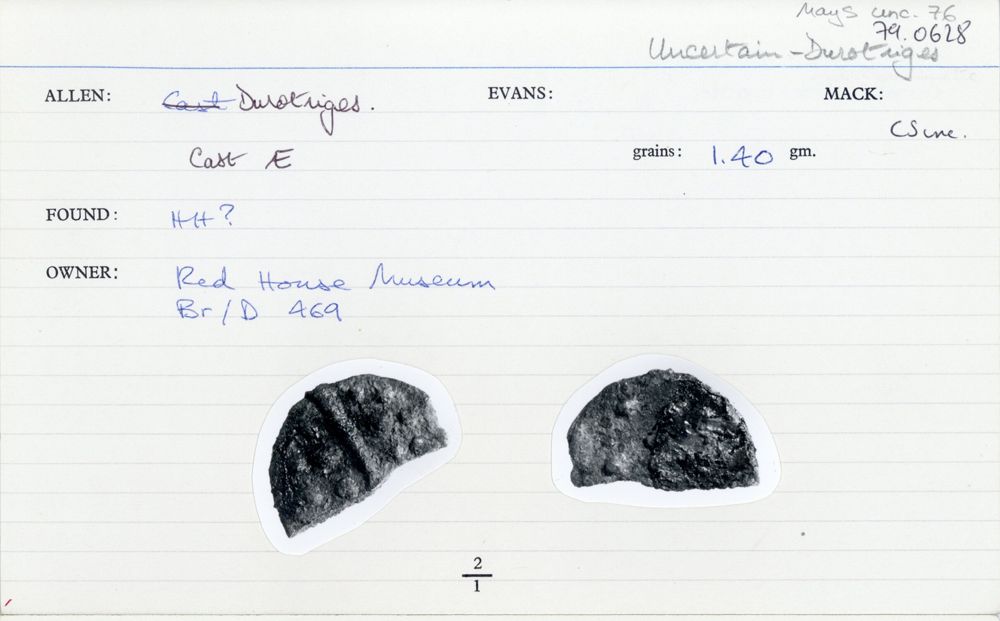 Mays unc. 76
79.0628
Uncertain - Durotriges
ALLEN: Cast Durotriges. EVANS: MACK:
CS unc.
Cast Æ grains: 1.40 gm.
FOUND: HH?
OWNER: Red House Museum
Br/D 469
2
1